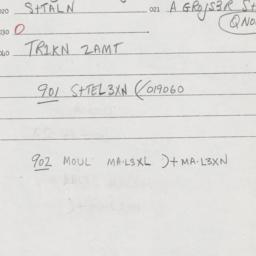 020 S+TALN 021 A GROJS3R S+
030 O (QNO
060 TR1KN 2AMT
901 S+TEL3XN (/019060
902 MOUL MA.L3XL )+MA.L3XN